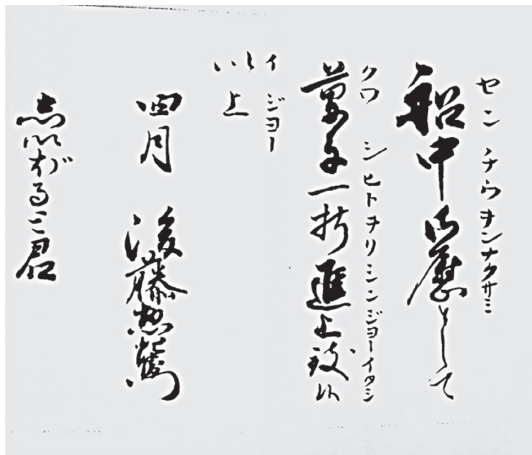 センチウヲンナクサミ
船中御慰として
クワ シヒトヲリシンジヨーイタシ
菓子一折進上致候
イジヨー
以上
四月 後藤惣
志いがる
君